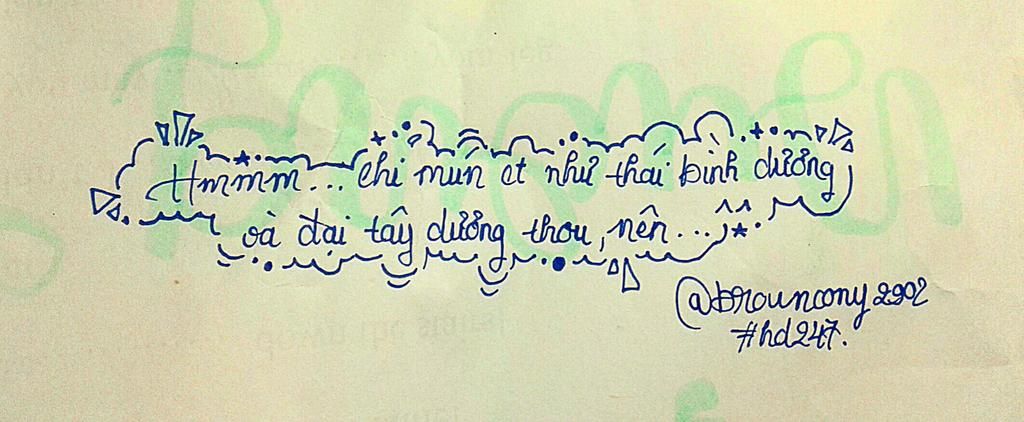 Hmmm... chỉ mún ct như thái bình dương
và đại tây dương thou, nên...^^
@brouncony2902
#hd247.